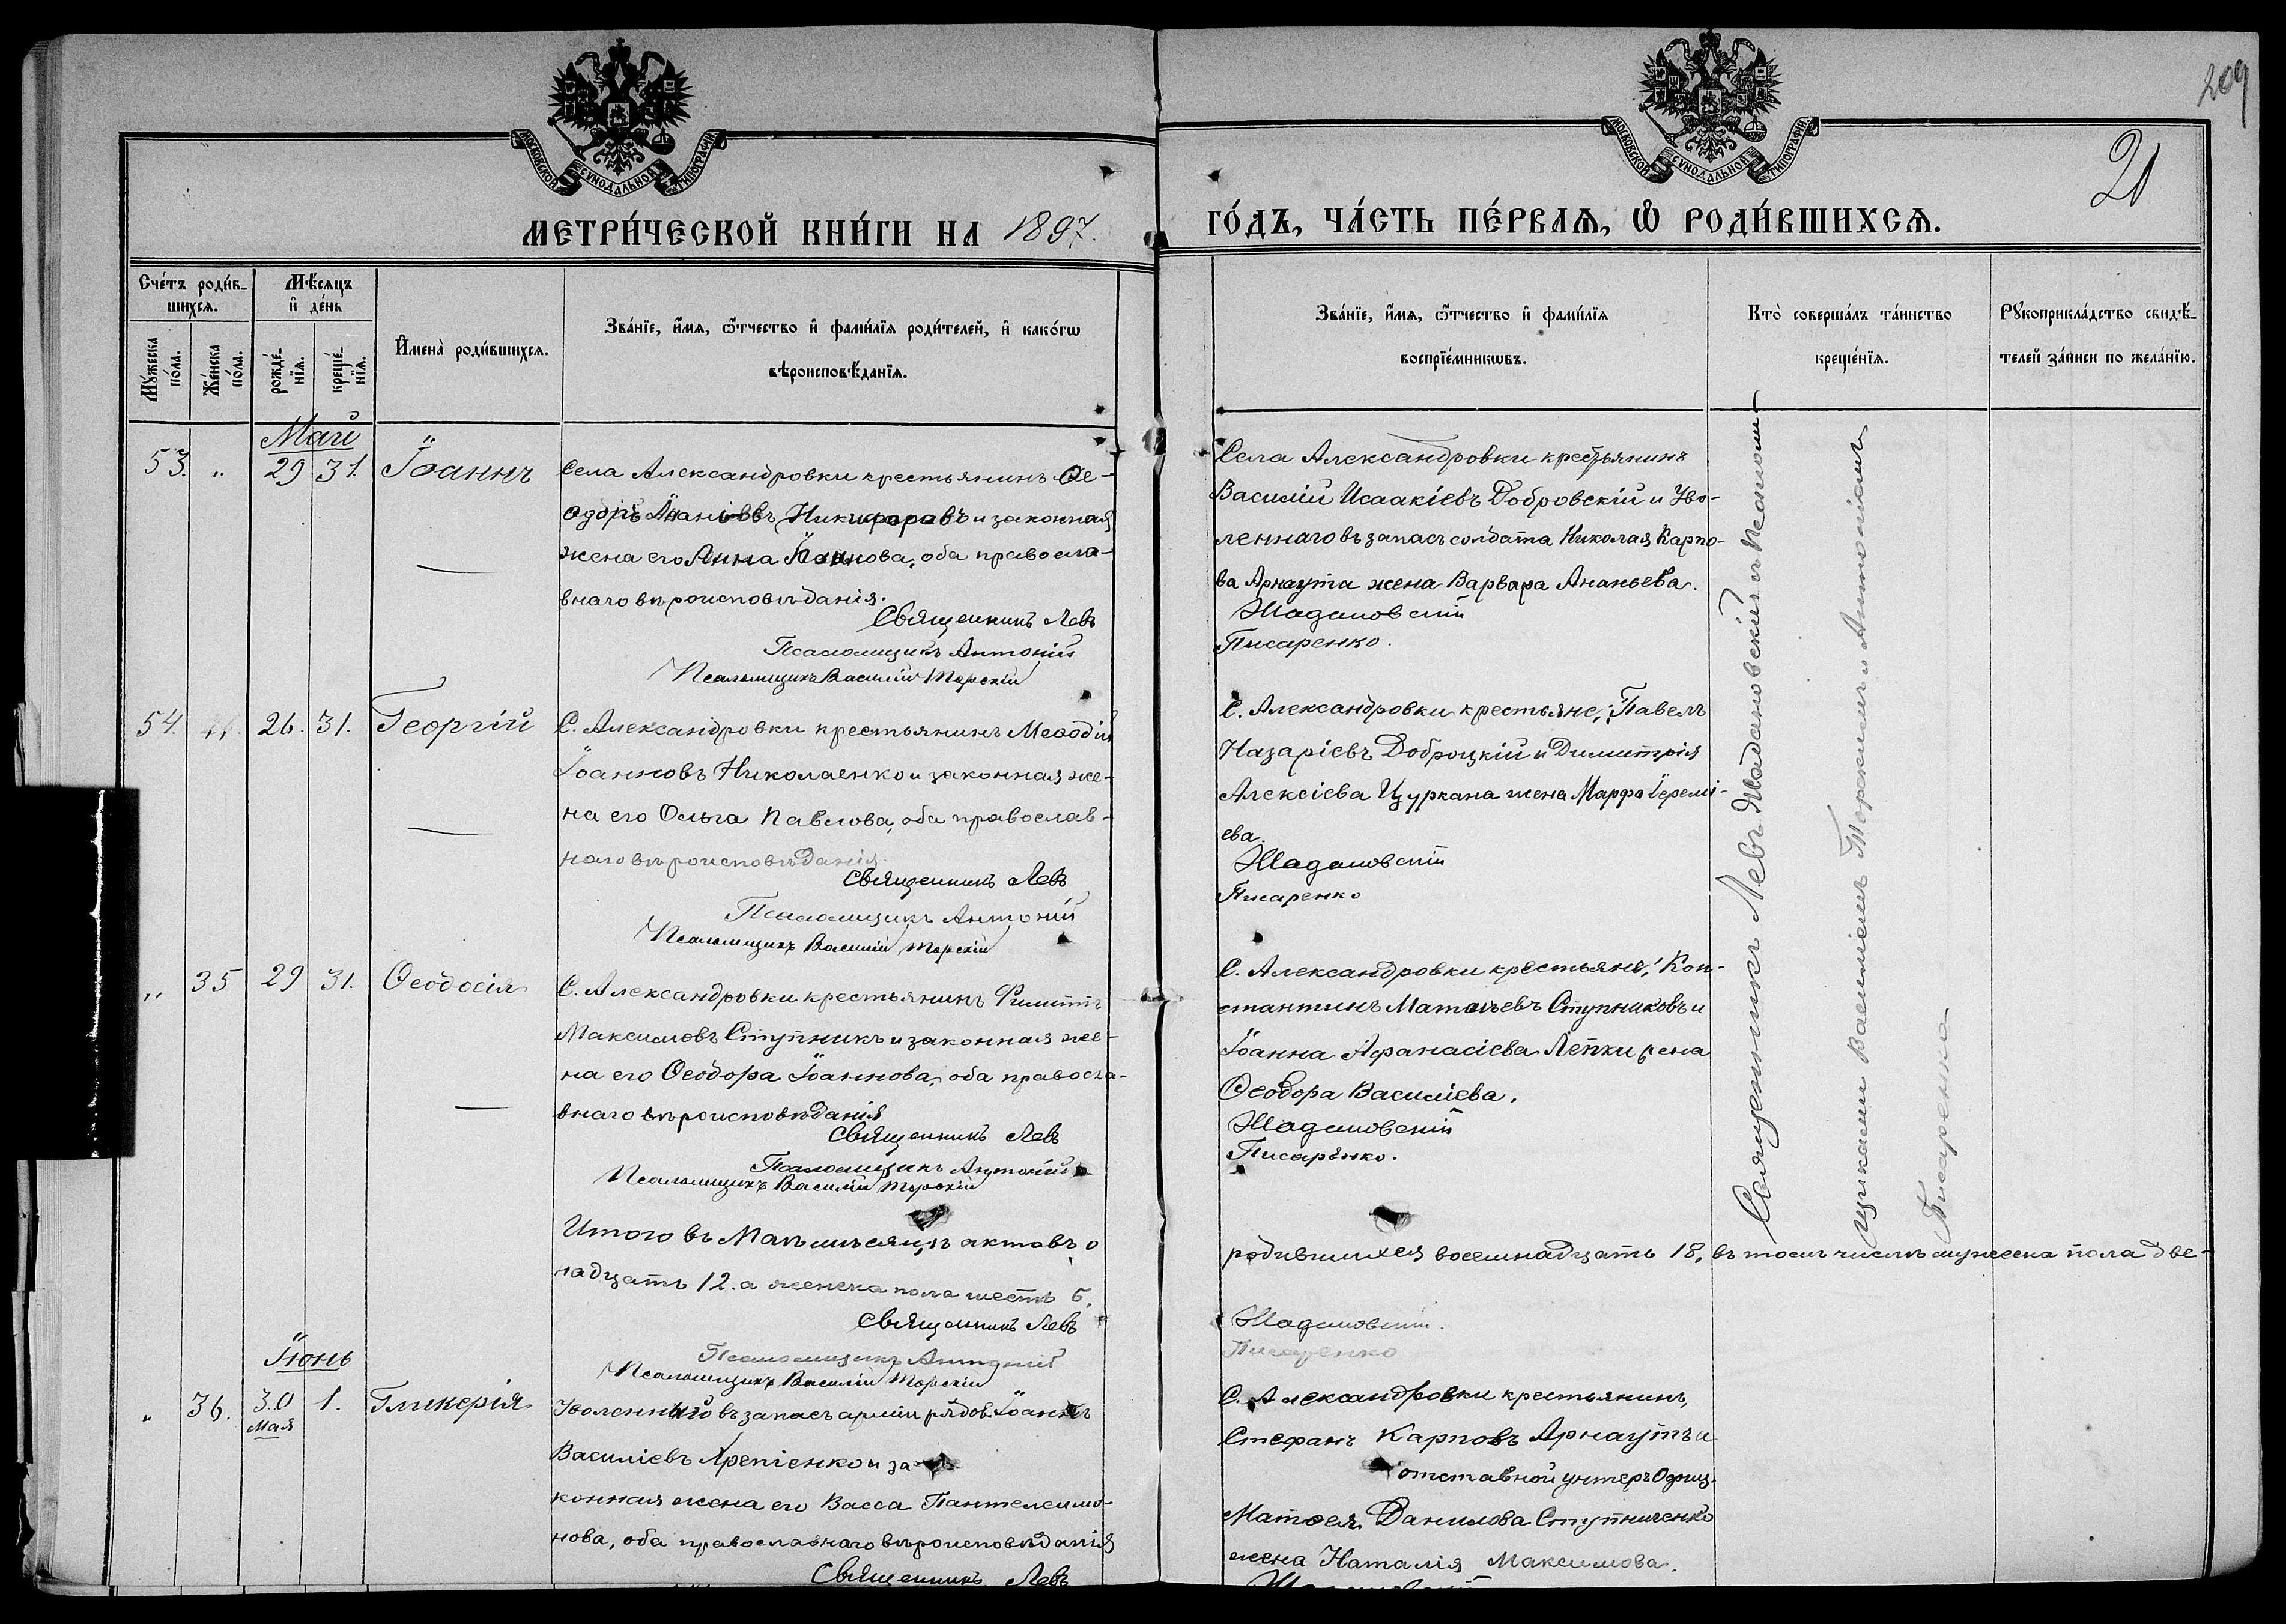 209
21
МОСКОВСКОЙ СѴНОДАЛЬНОЙ ТИПОГРАФІИ
МОСКОВСКОЙ СѴНОДАЛЬНОЙ ТИПОГРАФІИ
МЕТРИ́ЧЕСКОЙ КНИ́ГИ НА 1897.
ГО́ДЪ, ЧА́СТЬ ПЕ́РВАѦ, Ѽ РОДИ́ВШИХСѦ.
Сче́тъ роди́в-
шихсѧ.
Мꙋ́жеска по́ла.
Же́нска по́ла.
Мѣ́сѧцъ
и҆ де́нь
рожде́-
нїѧ.
креще́-
нїѧ.
И҆мена̀ роди́вшихсѧ.
Зва́нїе, и҆́мѧ, ѻ҆́тчество и҆ фами́лїѧ роди́телей, и҆ како́гѡ
вѣроисповѣ́данїѧ.
Зва́нїе, и҆́мѧ, ѻ҆́тчество и҆ фами́лїѧ
воспрїе́мникѡвъ.
Кто̀ соверша́лъ та́инство
креще́нїѧ.
Рꙋкоприкла́дство свидѣ́-
телей за́писи по жела́нїю.
Май
53. „ 29 31. Іоаннъ
Села Александровки крестьянинъ Ѳе-
одоръ Ананіевъ Никифоровъ и законная
жена его Анна Іоаннова, оба правосла-
внаго вѣроисповѣданія.
Священникъ Левъ
Псаломщикъ Антоній
Псаломщикъ Василій Торскій
Села Александровки крестьянинъ
Василій Исаакіевъ Добровскій и Уво-
леннаго въ запасъ солдата Николая Карпо-
ва Арнаута жена Варвара Ананьева.
Шадановскій
Писаренко.
54. „ 26. 31. Георгій
С. Александровки крестьянинъ Меѳодій
Іоанновъ Николаенко и законная же-
на его Ольга Павлова, оба православ-
наго вѣроисповѣданія.
Священникъ Левъ
Псаломщикъ Антоній
Псаломщикъ Василій Торскій
С. Александровки крестьяне, Павелъ
Назаріевъ Доброцкій и Димитрія
Алексіева Цуркана жена Марфа Іеремі-
ева.
Шадановскій
Писаренко
„ 35 29 31. Ѳеодосія
С. Александровки крестьянинъ Филиппъ
Максимовъ Ступникъ и законная же-
на его Ѳеодора Іоаннова, оба правосла-
внаго вѣроисповѣданія
Священникъ Левъ
Псаломщикъ Антоній
Псаломщикъ Василій Торскій
С. Александровки крестьяне: Кон-
стантинъ Матѳіевъ Ступниковъ и
Іоанна Аѳанасіева Лепки жена
Ѳеодора Василіева.
Шадановскій
Писаренко.
Священникъ Левъ Шадановскій съ Псалом-
щиками Василіемъ Торскимъ и Антоніемъ
Писаренко
Итого въ Маѣ мѣсяцѣ актовъ о
родившихся восемнадцать 18, въ томъ числѣ мужеска пола две-
надцать 12. а женска пола шесть 6.
Священникъ Левъ
Шадановскій.
Псаломщикъ Антоній
Писаренко
Псаломщикъ Василій Торскій
Іюнь
„ 36. 30 Мая 1. Гликерія
Уволенный въ запасъ арміи рядов. Іоаннъ
Василіевъ и за-
конная жена его Васса Пантелеимо-
нова, оба православнаго вѣроисповѣданія
Священникъ Левъ
С. Александровки крестьянинъ,
Стефанъ Карповъ Арнаутъ и
отставной унтеръ Офиц.
Матѳея Данилова Ступниченко
жена Наталія Максимова.
Шадановскій